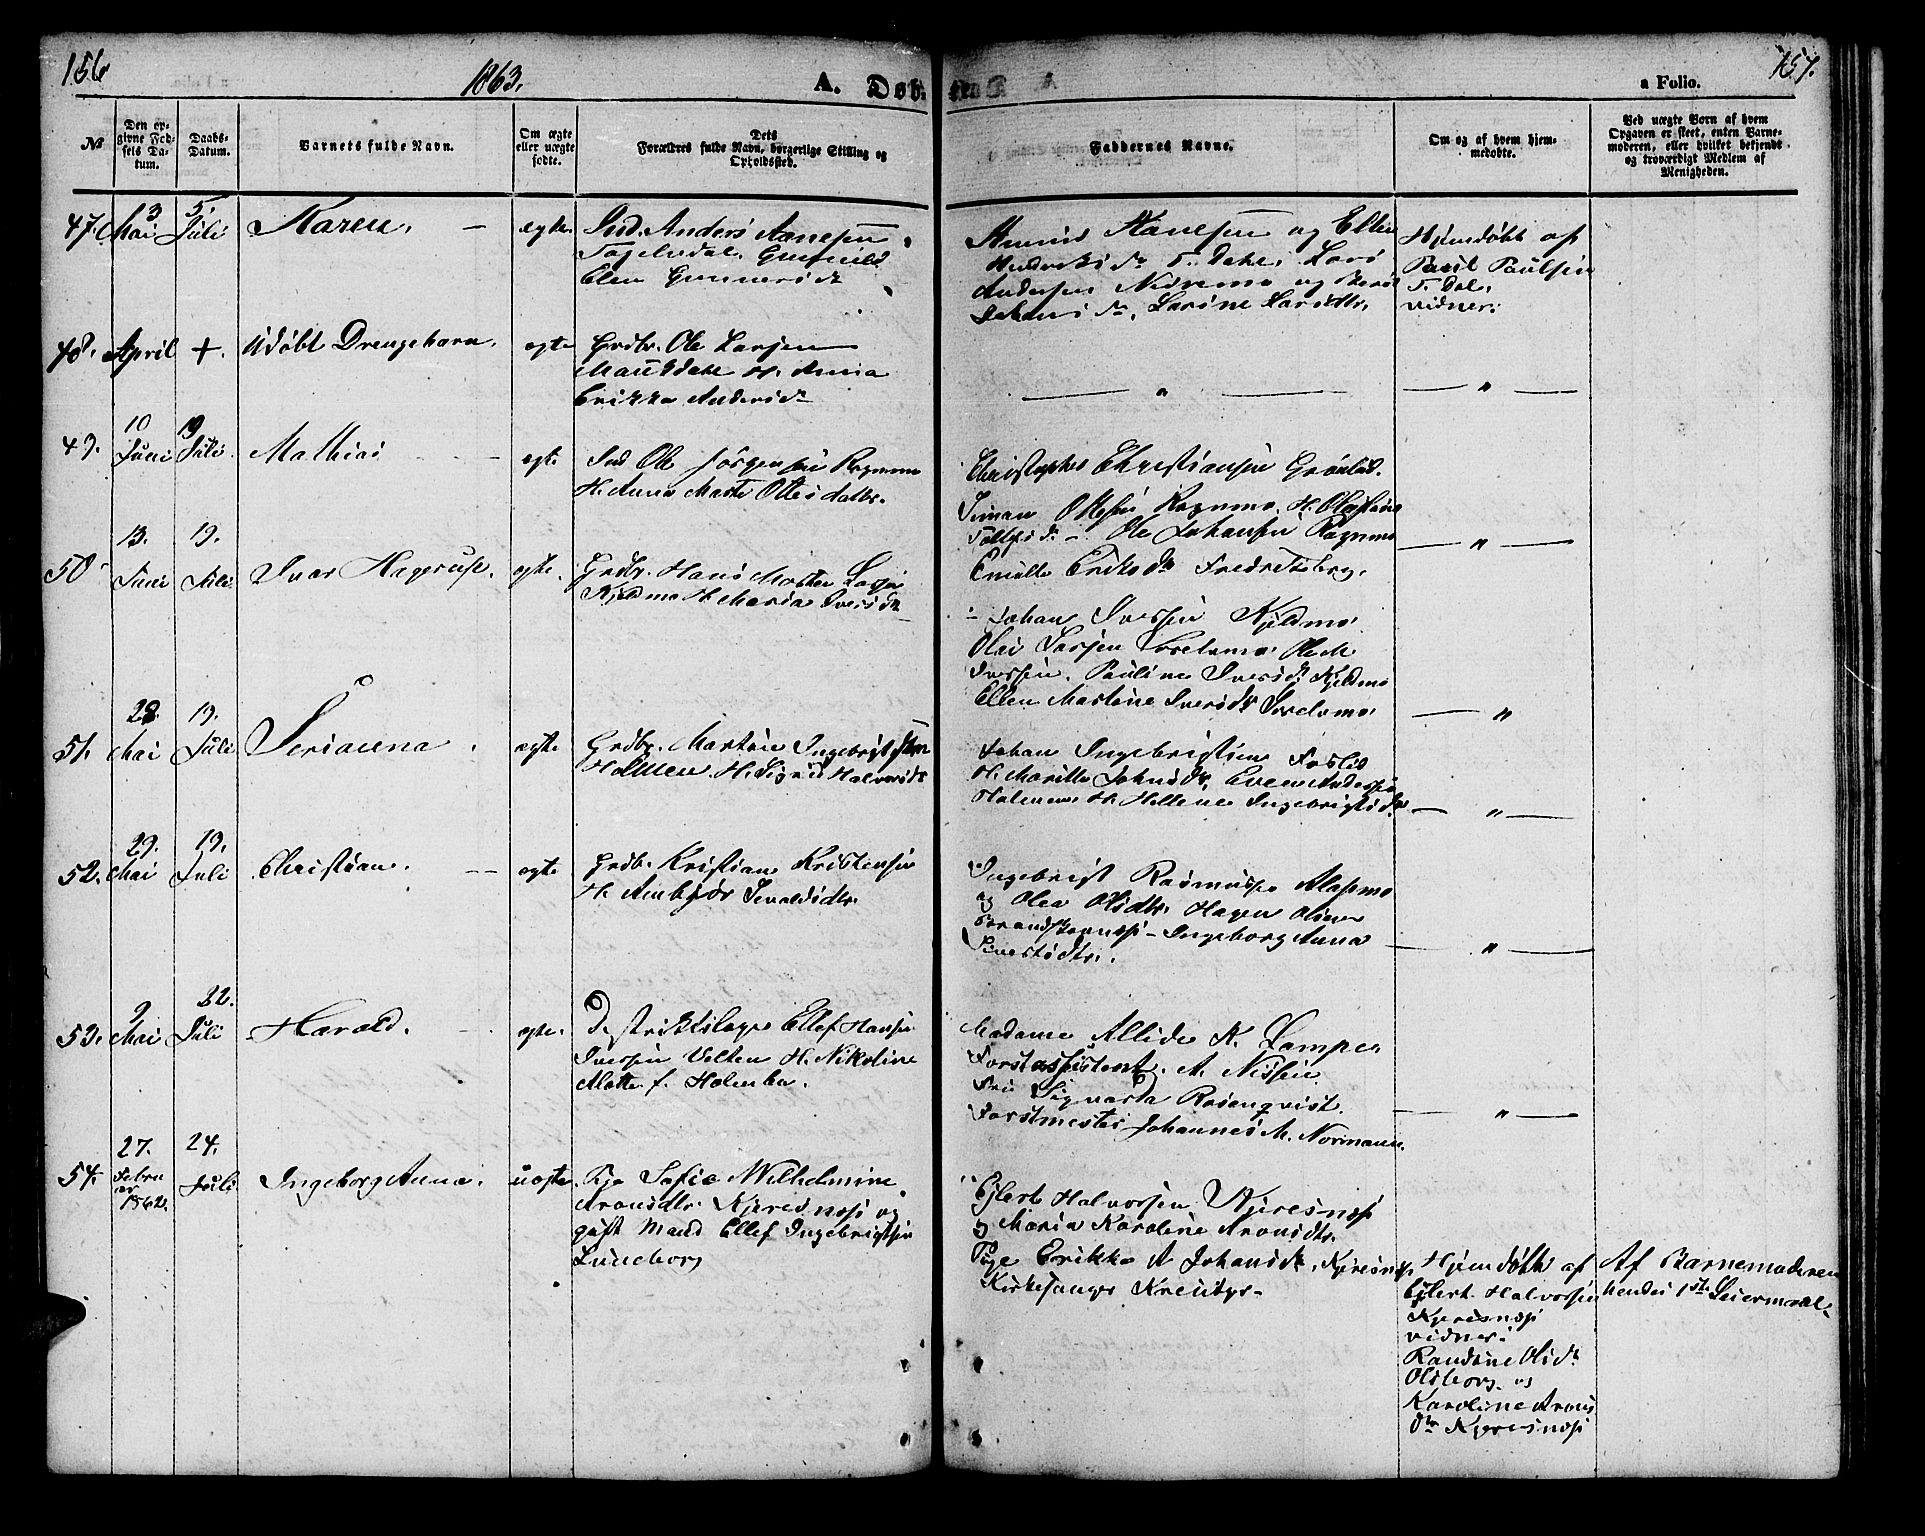 156
1863.
A. Døb-
157.
a Folio.
No
Den op-
givne Fød-
sels Da-
tum.
Daabs-
Datum.
Barnets fulde Navn.
Om ægte
eller uægte
fødte.
Dets
Forældres fulde Navn, borgerlige Stilling og
Opholdssted.
Faddernes Navne.
Om og af hvem hjem-
medøbte.
Ved uægte Børn af hvem
Opgaven er skeet, enten Barne-
moderen, eller hvilket bekjendt
og troværdigt Medlem af
Menigheden.
47. 3 Mai 5. Juli Karen. egte. Ind. Anders Aanesen
Fagelidal. Gunnild
Elen Gunnersdtr
Aanesen og Ellen
Dale. Lars
Andersen Nedremo og
Larine Larsdtr.
Hjemdøbt af
Paul Paulsen
F. Dal.
vidner:
48. April +. Udøbt Drengebarn. egte Grdbr. Ole Larsen
H. Anna
Erikka Andersdtr
"
"
49. 10 Juni 19 Juli. Mathias egt. Ind Ole Jørgensen Rognmo
H. Anna Marte Ottesdatr.
Christopher Christiansen Grønlid.
Simon Ottesen Rognmo. H.
Ole Johansen Rognmo
"
Eriksdtr Fredriksberg.
50. 13. Juni 19. Juli Ivar Hagerup. egte. Grdbr. Hans Morten Larsen
Kjeldmo H. Maria Iversdtr
Johan Iversen Kjeldmo
Olai Larsen Ole M
Iversen. Pauline Iversdtr Kjeldmo
Ellen Martine Iversdtr
"
51. 28. Mai 19. Juli Serianna. egte Grdbr. Martin Ingebrigtsen
Holmen. H. Sigrid Halvorsdtr
Johan Ingebrigtsen Foslid
H. Marith Johnsdtr, Even Andersen
Holmen H. Hellene Ingebrigtsdtr
"
52. 29. Mai 19. Juli Christian. egte Grdb. Kristian Kristensen
H. Anbjør Sivaldsdtr.
Ingebrigt Rasmussen Alapmo
og Olea Olsdtr. Hagen Olsen
Brandskognes - Ingeborg Anna
"
53. 9 Mai 22. Juli Harald. egte. Distriktslæge Ellef Hansen
Iversen Velten H. Nikoline
Alette f. Holmboe.
Madame Allide K. Lampe,
Forstassistent. A. Nissen
Frü Signarda Rosenqvist.
Forstmester Johannes M. Normann.
"
54. 27. Februar 1862. 24. Juli Ingeborg Anna. uegte. Pige Sofie Wilhelmine
Aronsdtr. Kjeresnæs og
gift Mand Ellef Ingebrigtsen
Luneborg
Ejlert Halvorsen Kjeresnæs
og Maria Karoline Aronsdtr.
Pige Erikka A Johansdtr, Kjeresnæs,
Kirkesanger Kreutzer-
Hjemdøbt af
Ejlert. Halvorsen
Kjeresnæs
vidner:
Randine Olsdtr
Olsborg og
Karoline Arons
dtr Kjeresnæs
Af Barnemoderen
hendes 1ste Leiermaal.